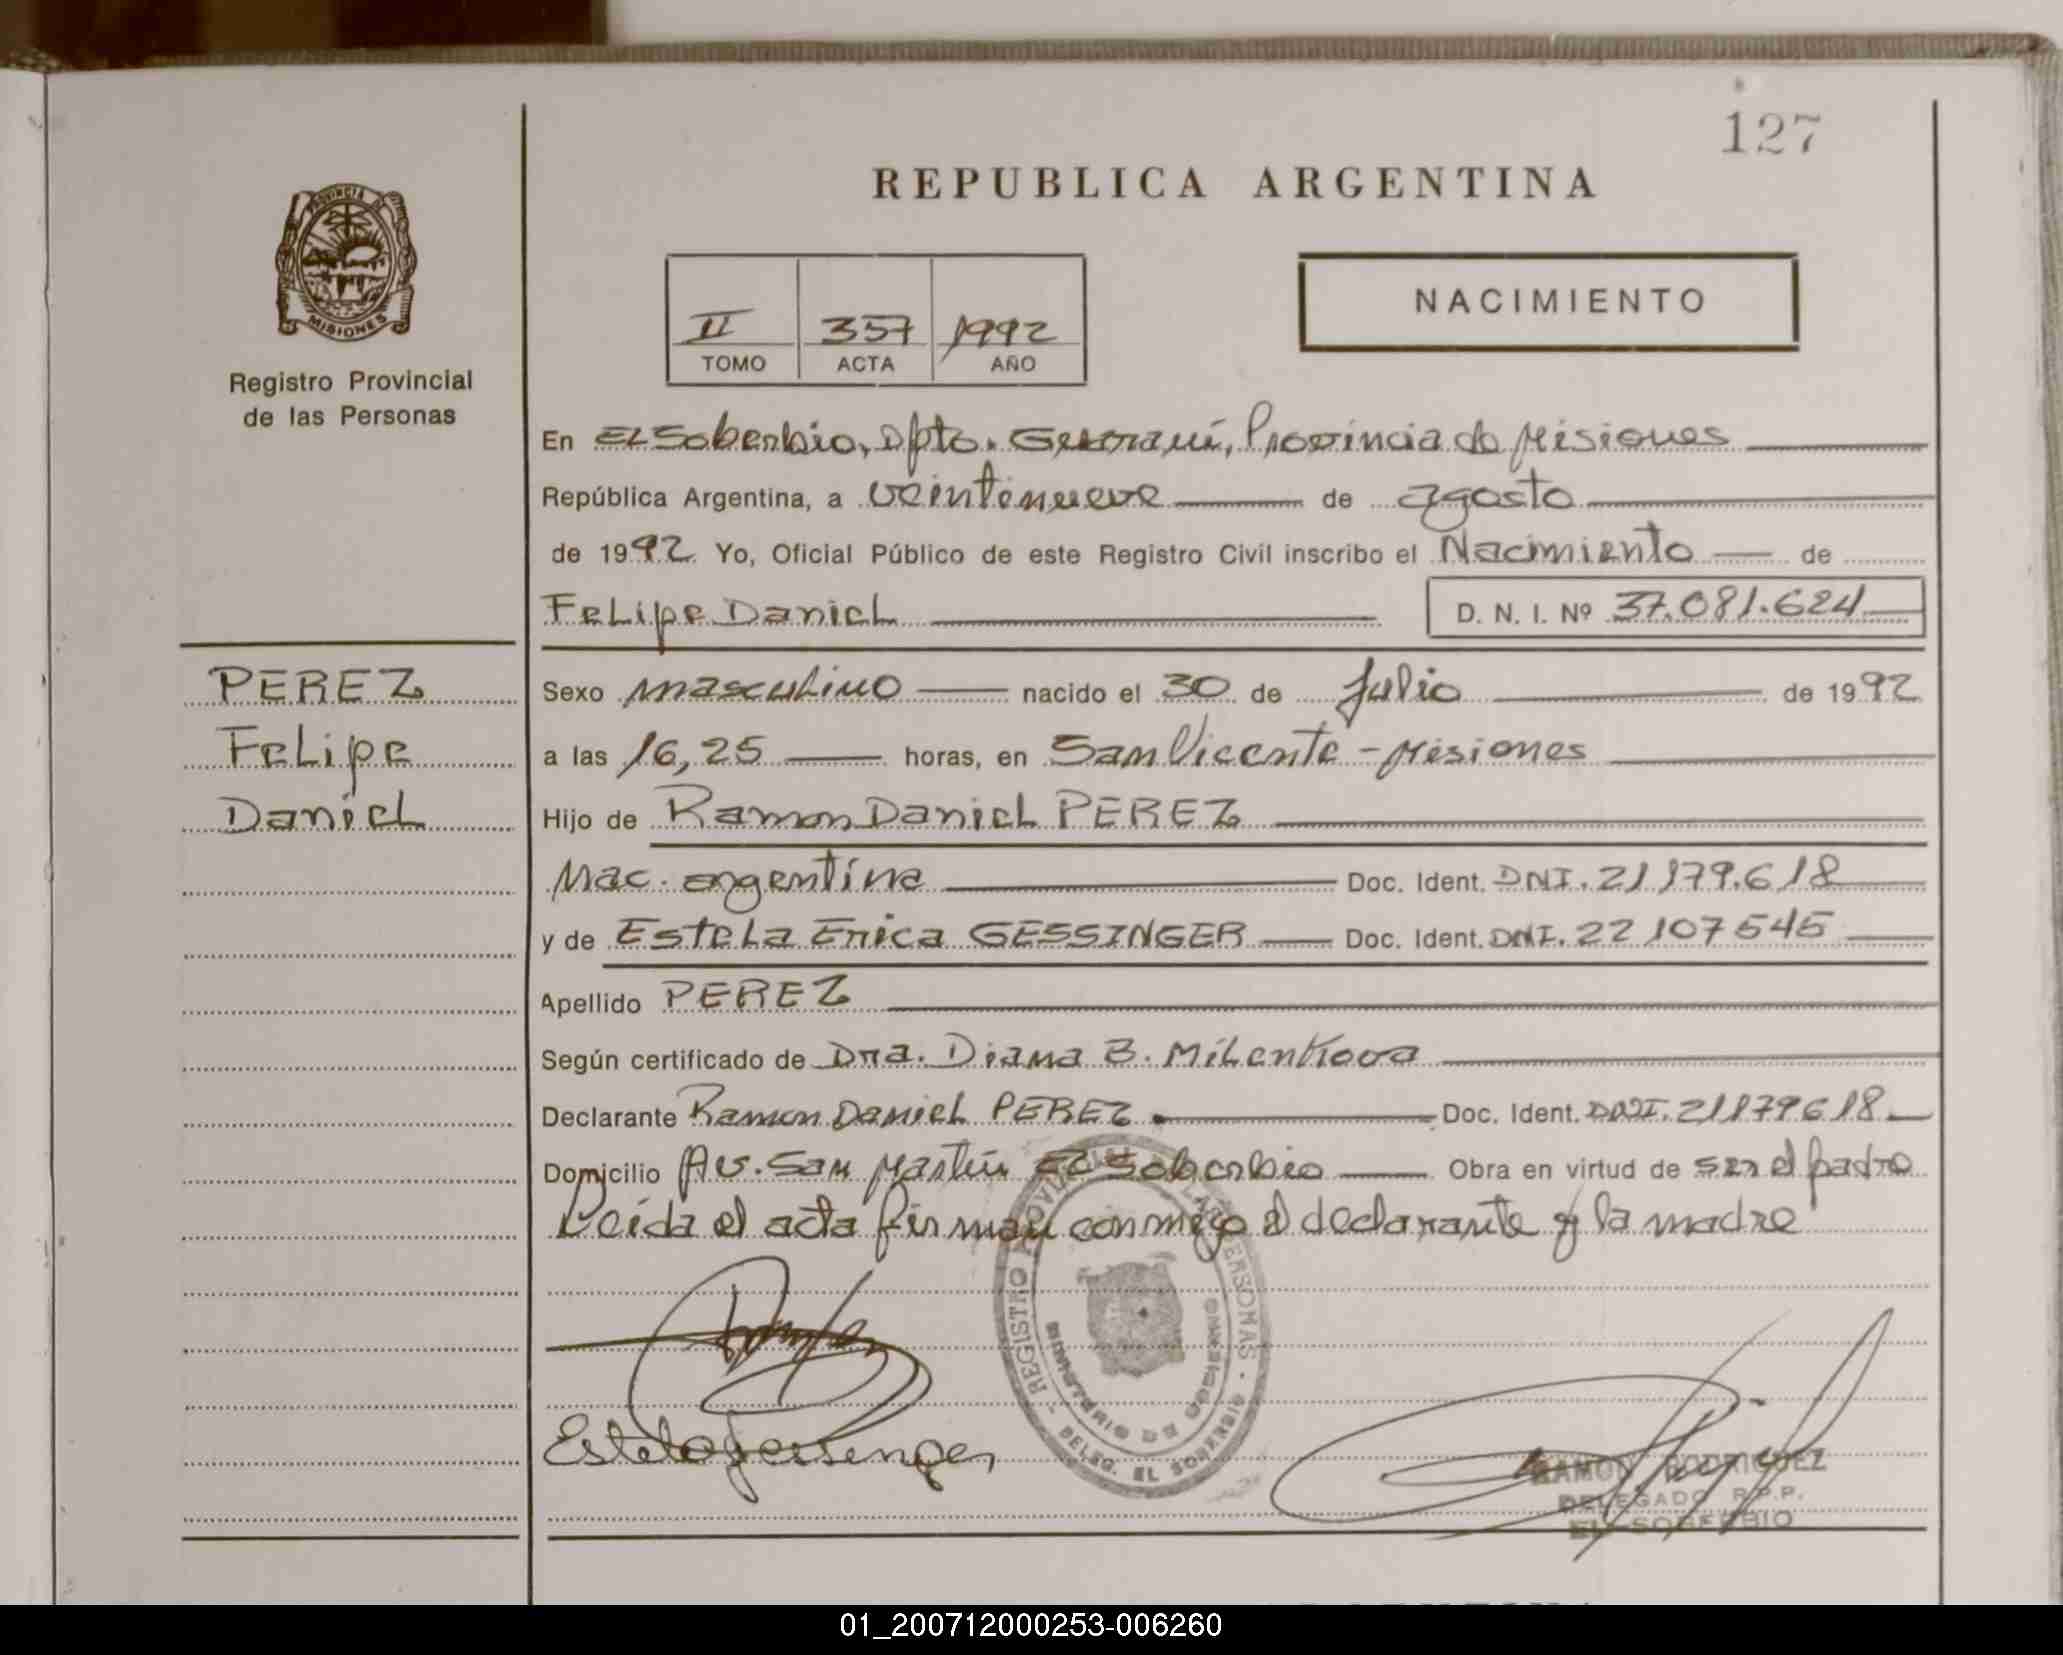 127
REPUBLICA ARGENTINA
PROVINCIA DE
MISIONES
Registro Provincial
de las Personas
II 357 1992
TOMO ACTA AÑO
NACIMIENTO
En El Soberbio, Dpto. Guaraní, Provincia de Misiones
República Argentina, a veintinueve de agosto
de 1992 Yo, Oficial Público de este Registro Civil inscribo el Nacimiento de
Felipe Daniel D. N. I. Nº 37.081.624
PEREZ
Felipe
Daniel
Sexo masculino nacido el 30 de Julio de 1992
a las 16,25 horas, en San Vicente - Misiones
Hijo de Ramon Daniel PEREZ
Nac. argentina Doc. Ident. DNI. 21 179.618
y de Estela Erica GESSINGER Doc. Ident. DNI. 22 107 545
Apellido PEREZ
Según certificado de Dra. Diana B. Milenkova
Declarante Ramon Daniel PEREZ Doc. Ident. DNI. 21179618
Domicilio Av. San Martín El Soberbio Obra en virtud de ser el padre
Leida el acta firman conmigo el declarante y la madre
REGISTRO PROVINCIAL DE LAS PERSONAS
MINISTERIO DE GOBIERNO
DELEG. EL SOBERBIO
Estela Gessinger
RAMON RODRIGUEZ
DELEGADO R.P.P.
EL SOBERBIO
01_200712000253-006260